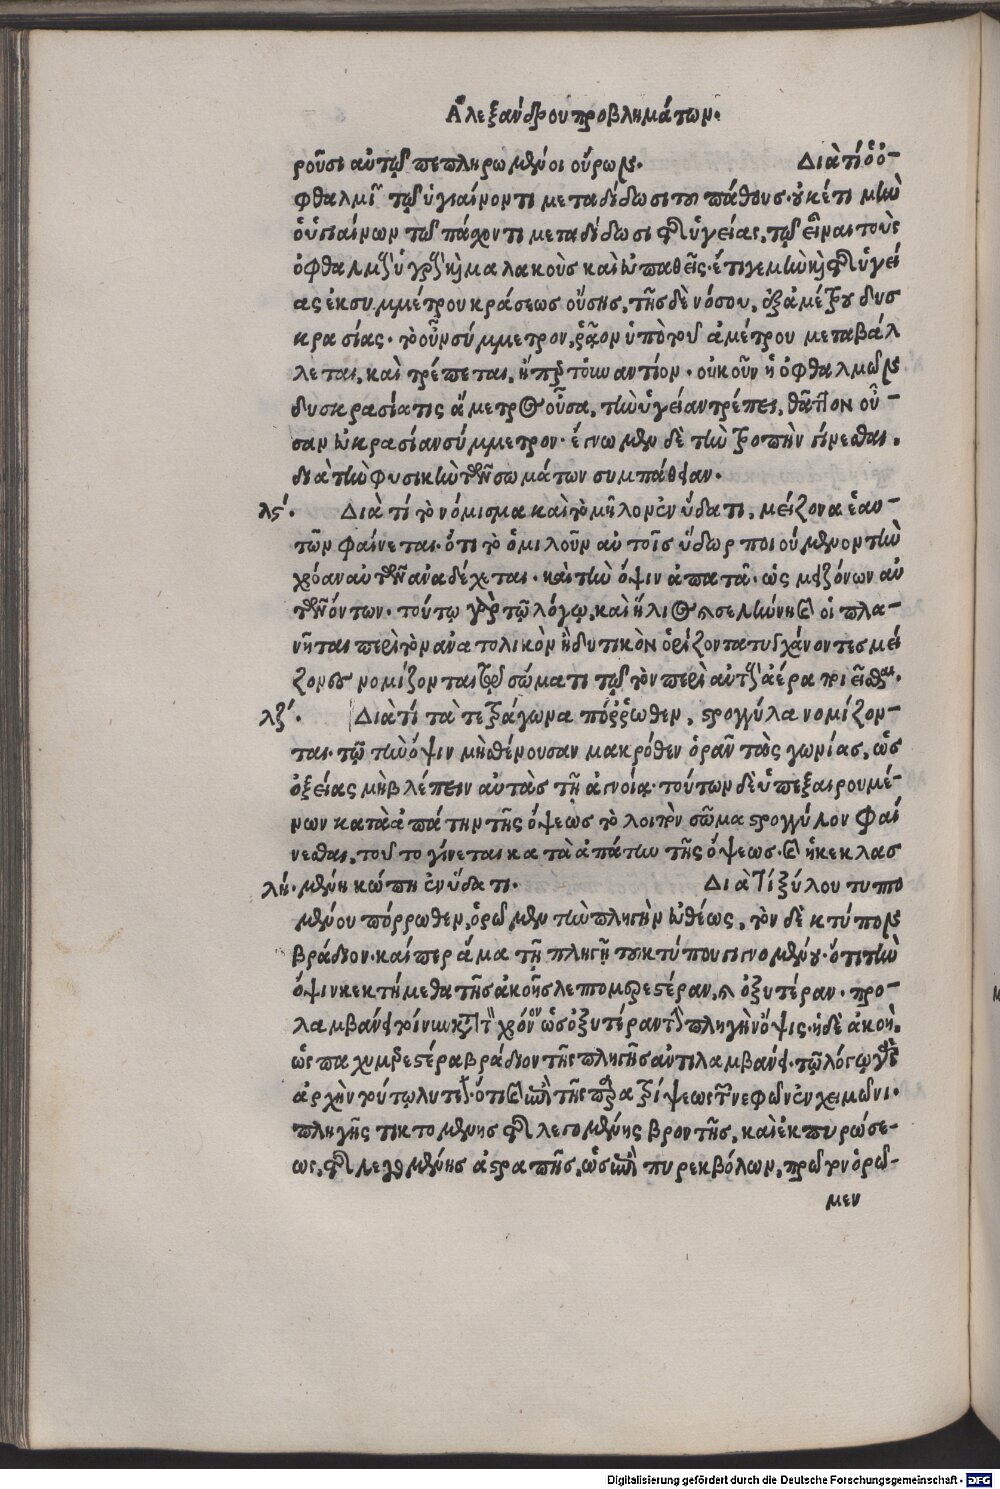 Ἀλεξάνδρου προβλημάτων.
ροῦσι αὐτῷ πεπληρωμένοι οὔρων. Διὰ τί ὁ ὀ-
φθαλμιῶν τῷ ὑγιαίνοντι μεταδίδωσι τοῦ πάθους. οὐκέτι μὴν
ὁ ὑγιαίνων τῷ πάσχοντι μεταδίδωσι τῆς ὑγείας, τῷ εἶναι τοὺς
ὀφθαλμοὺς ὑγροὺς καὶ μαλακοὺς καὶ εὐπαθεῖς. ἔτι γε μὴν καὶ τῆς ὑγεί
ας ἐκ συμμέτρου κράσεως οὔσης, τῆς δὲ νόσου, ἐξ ἀμέτρου δυσ
κρασίας. τὸ οὖν σύμμετρον, ῥᾷον ὑπὸ τοῦ ἀμέτρου μεταβάλ
λεται, καὶ τρέπεται, ἤπερ τὸ ἐναντίον. οὐκοῦν ἡ ὀφθαλμῶν
δυσκρασία τις ἄμετρος οὖσα, τὴν ὑγείαν τρέπει, θᾶττον οὖ-
σαν εὐκρασίαν σύμμετρον. ἔγνωμεν δὲ τὴν τροπὴν γίνεσθαι,
διὰ τὴν φυσικὴν τῶν σωμάτων συμπάθειαν.
λϛ΄. Διὰ τί τὸ νόμισμα καὶ τὸ μῆλον ἐν ὕδατι, μείζονα ἑαυ-
τῶν φαίνεται. ὅτι τὸ ὁμιλοῦν αὐτοῖς ὕδωρ ποιούμενον τὴν
χρόαν αὐτῶν ἀναδέχεται. καὶ τὴν ὄψιν ἀπατᾷ. ὡς μειζόνων αὐ
τῶν ὄντων. τούτῳ γὰρ τῷ λόγῳ, καὶ ἥλιος καὶ σελήνη καὶ οἱ πλα-
νῆται περὶ τὸν ἀνατολικὸν ἢ δυτικὸν ὁρίζοντα τυγχάνοντες μεί
ζονες νομίζονται τῷ σώματι τῷ τὸν περὶ αὐτοὺς ἀέρα ποιεῖσθαι.
λζ΄. Διὰ τί τὰ τετράγωνα πόῤῥωθεν, στρογγύλα νομίζον-
ται. τῷ τὴν ὄψιν μὴ σθένουσαν μακρόθεν ὁρᾶν τὰς γωνίας, ὡς
ὀξείας μὴ βλέπειν αὐτὰς τῇ ἀγνοίᾳ. τούτων δὲ ὑπεξαιρουμέ-
νων κατὰ ἀπάτην τῆς ὄψεως τὸ λοιπὸν σῶμα στρογγύλον φαί
νεσθαι. τοῦτο γίνεται κατὰ ἀπάτην τῆς ὄψεως. καὶ ἡ κεκλασ
λή. μένη κώπη ἐν ὕδατι. Διὰ τί ξύλου τυπτο
μένου πόρρωθεν, ὁρῶμεν τὴν πληγὴν εὐθέως, τὸν δὲ κτύπον
βράδιον. καίπερ ἅμα τῇ πληγῇ τοῦ κτύπου γινομένου. ὅτι τὴν
ὄψιν κεκτήμεθα τῆς ἀκοῆς λεπτομερεστέραν, καὶ ὀξυτέραν. προ-
λαμβάνει τοίνυν κατὰ τὸν χρόνον ὡς ὀξυτέραν τὴν πληγὴν ὄψις. ἡ δὲ ἀκοή,
ὡς παχυμερεστέρα βράδιον τῆς πληγῆς ἀντιλαμβάνει. τῷ λόγῳ γὰρ
ἀρχὴν τούτῳ λυτέον. ὅτι καὶ ἐπὶ τῆς παρατρίψεως τῶν νεφῶν ἐν χειμῶνι.
πληγῆς τικτομένης τῆς λεγομένης βροντῆς, καὶ ἐκπυρώσε-
ως, τῆς λεγομένης ἀστραπῆς, ὡς ἐπὶ πυρεκβόλων, πρῶτον ὁρῶ-
μεν
Digitalisierung gefördert durch die Deutsche Forschungsgemeinschaft - DFG